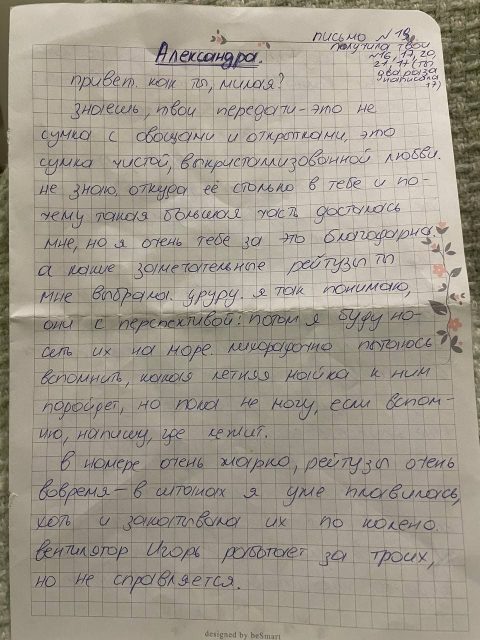 письмо №19
получила твои
№16, 17, 20,
21, 17 (ты
два раза
написала
17)
Александра.
привет. как ты, милая?
знаешь, твои передачи - это не
сумка с овощами и открытками, это
сумка чистой, выкристаллизованной любви.
не знаю, откуда её столько в тебе и по-
чему такая большая часть досталась
мне, но я очень тебе за это благодарна.
а какие замечательные рейтузы ты
мне выбрала. уруру. я так понимаю,
они с перспективой: потом я буду но-
сить их на море. лихорадочно пытаюсь
вспомнить, какая летняя майка к ним
подойдёт, но пока не могу, если вспом-
ню, напишу, где лежит.
в номере очень жарко, рейтузы очень
вовремя - в штанах я уже плавилась,
хоть и закатывала их по колено.
вентилятор Игорь работает за троих,
но не справляется.
designed by beSmart